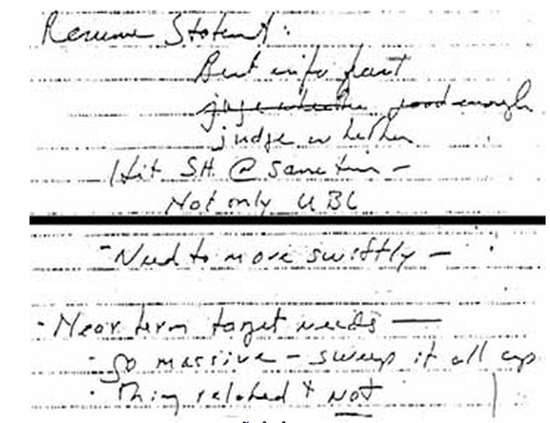 Resume Statemt:
Best info fast
judge whether good enough
judge whether
Hit S.H. @ same time -
Not only UBL
- Need to move swiftly -
- Near term target needs -
- go massive - sweep it all up
- Thing related + not